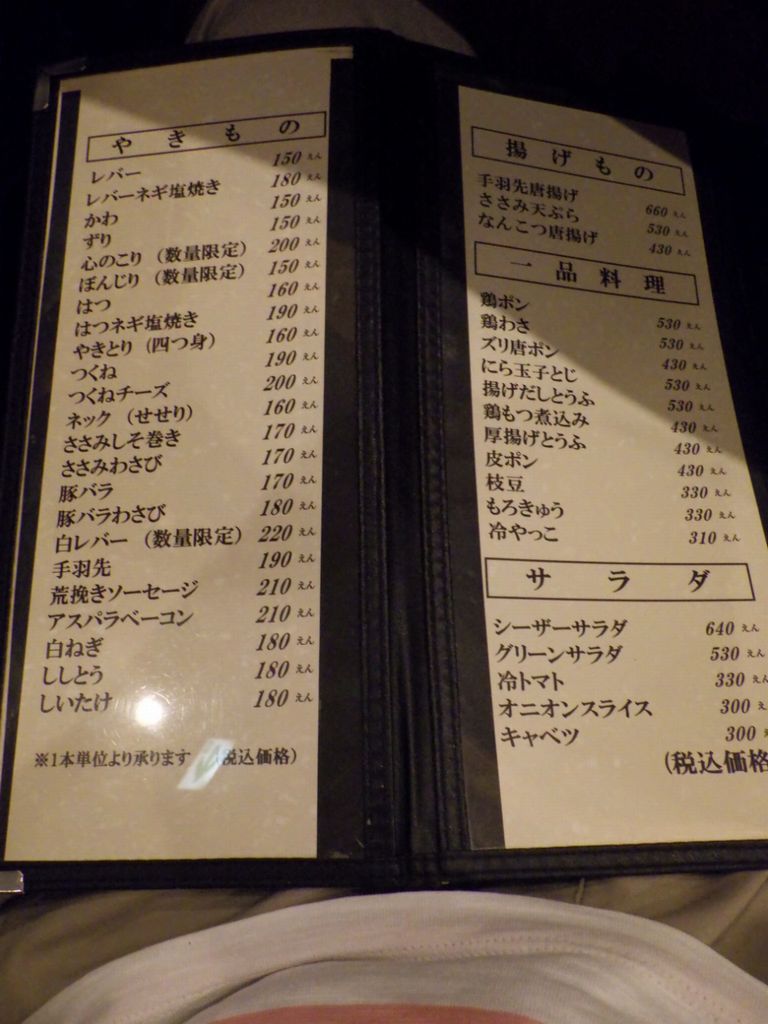 やきもの
レバー 150えん
レバーネギ塩焼き 180えん
かわ 150えん
ずり 150えん
心のこり（数量限定） 200えん
ぼんじり（数量限定） 150えん
はつ 160えん
はつネギ塩焼き 190えん
やきとり（四つ身） 160えん
つくね 190えん
つくねチーズ 200えん
ネック（せせり） 160えん
ささみしそ巻き 170えん
ささみわさび 170えん
豚バラ 170えん
豚バラわさび 180えん
白レバー（数量限定） 220えん
手羽先 190えん
荒挽きソーセージ 210えん
アスパラベーコン 210えん
白ねぎ 180えん
ししとう 180えん
しいたけ 180えん
※1本単位より承ります （税込価格）
揚げもの
手羽先唐揚げ 660えん
ささみ天ぷら 530えん
なんこつ唐揚げ 430えん
一品料理
鶏ポン 530えん
鶏わさ 530えん
ズリ唐ポン 430えん
にら玉子とじ 530えん
揚げだしとうふ 530えん
鶏もつ煮込み 430えん
厚揚げとうふ 430えん
皮ポン 430えん
枝豆 330えん
もろきゅう 330えん
冷やっこ 310えん
サラダ
シーザーサラダ 640えん
グリーンサラダ 530えん
冷トマト 330えん
オニオンスライス 300え
キャベツ 300
（税込価格